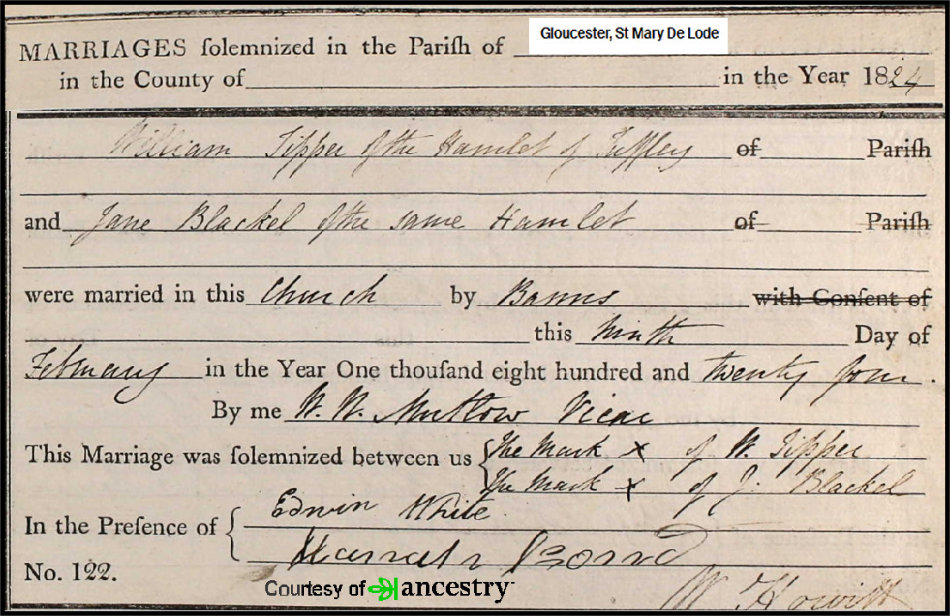 Gloucester, St Mary De Lode
MARRIAGES ſolemnized in the Pariſh of
in the County of in the Year 1824
William Tipper of the Hamlet of Tuffley of Pariſh
and Jane Blackel of the same Hamlet of Pariſh
were married in this Church by Banns with Conſent of
this Ninth Day of
February in the Year One thouſand eight hundred and twenty four.
By me W. W. Mutlow Vicar
This Marriage was ſolemnized between us { The Mark x of W. Tipper
The Mark x of J. Blackel
In the Preſence of { Edwin White
Hannah
No. 122.
Courtesy of ancestry